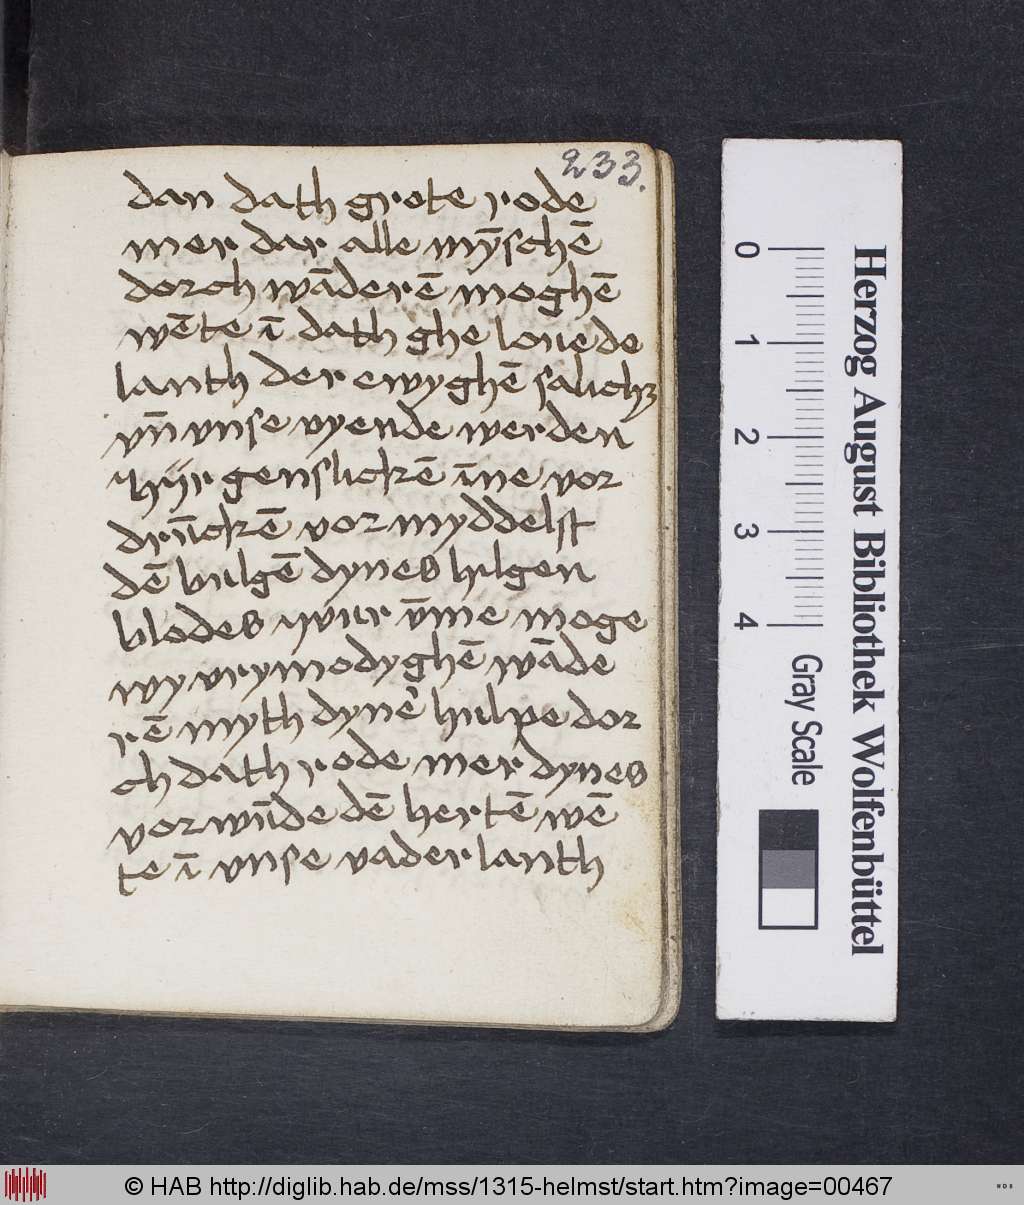 233.
dan dath grote rode
mer dar alle mȳschē
dorch wāderē moghē
wēte ī dath ghe louede
lanth der ewyghē salichꝫ
vn̄ vnse vyende werden
hyr genslickē īne vor
drīckē vor myddelst
dē bulgē dynes hilgen
blodes vm̄me moge
wy vrymodyghē wāde
rē myth dynē hulpe dor
ch dath rode mer dynes
vorwūde dē hertē wē
te ī vnse vader lanth
0 1 2 3 4
Gray Scale
Herzog August Bibliothek Wolfenbüttel
© HAB http://diglib.hab.de/mss/1315-helmst/start.htm?image=00467